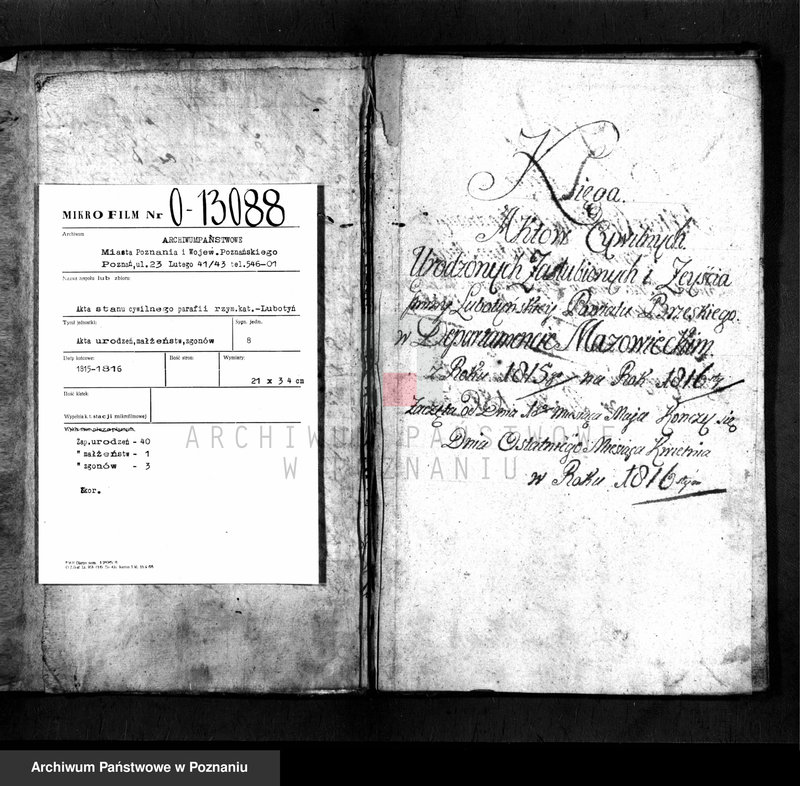 MIKROFILM Nr O-13088
Archiwum
ARCHIWUM PAŃSTWOWE
Miasta Poznania i Wojew. Poznańskiego
Poznań, ul. 23 Lutego 41/43 tel. 546-01
Nazwa zespołu lub zbioru
Akta stanu cywilnego parafii rzym.kat.-Lubotyń
Tytuł jednostki:
Sygn. jedn.
Akta urodzeń, małżeństw, zgonów
8
Daty końcowe:
Ilość stron:
Wymiary:
1815-1816
21 x 34 cm
Ilość klatek:
Wypełnia k t. stacji mikrofilmowej
Zap. urodzeń - 40
" małżeństw - 1
" zgonów - 3
Ekor.
Księga
Aktow Cywilnych
Urodzonych Zaślubionych i Zeyścia
Lubotyńskey Powiatu Brzeskiego
w Departamencie Mazowieckim
z Roku 1815go na Rok 1816ty
Zaczęta od Dnia 1o Miesiąca Maja Kończy się
Dnia Ostatniego Miesiąca Kwietnia
w Roku 1816
ARCHIWUM PAŃSTWOWE
W POZNANIU
Archiwum Państwowe w Poznaniu